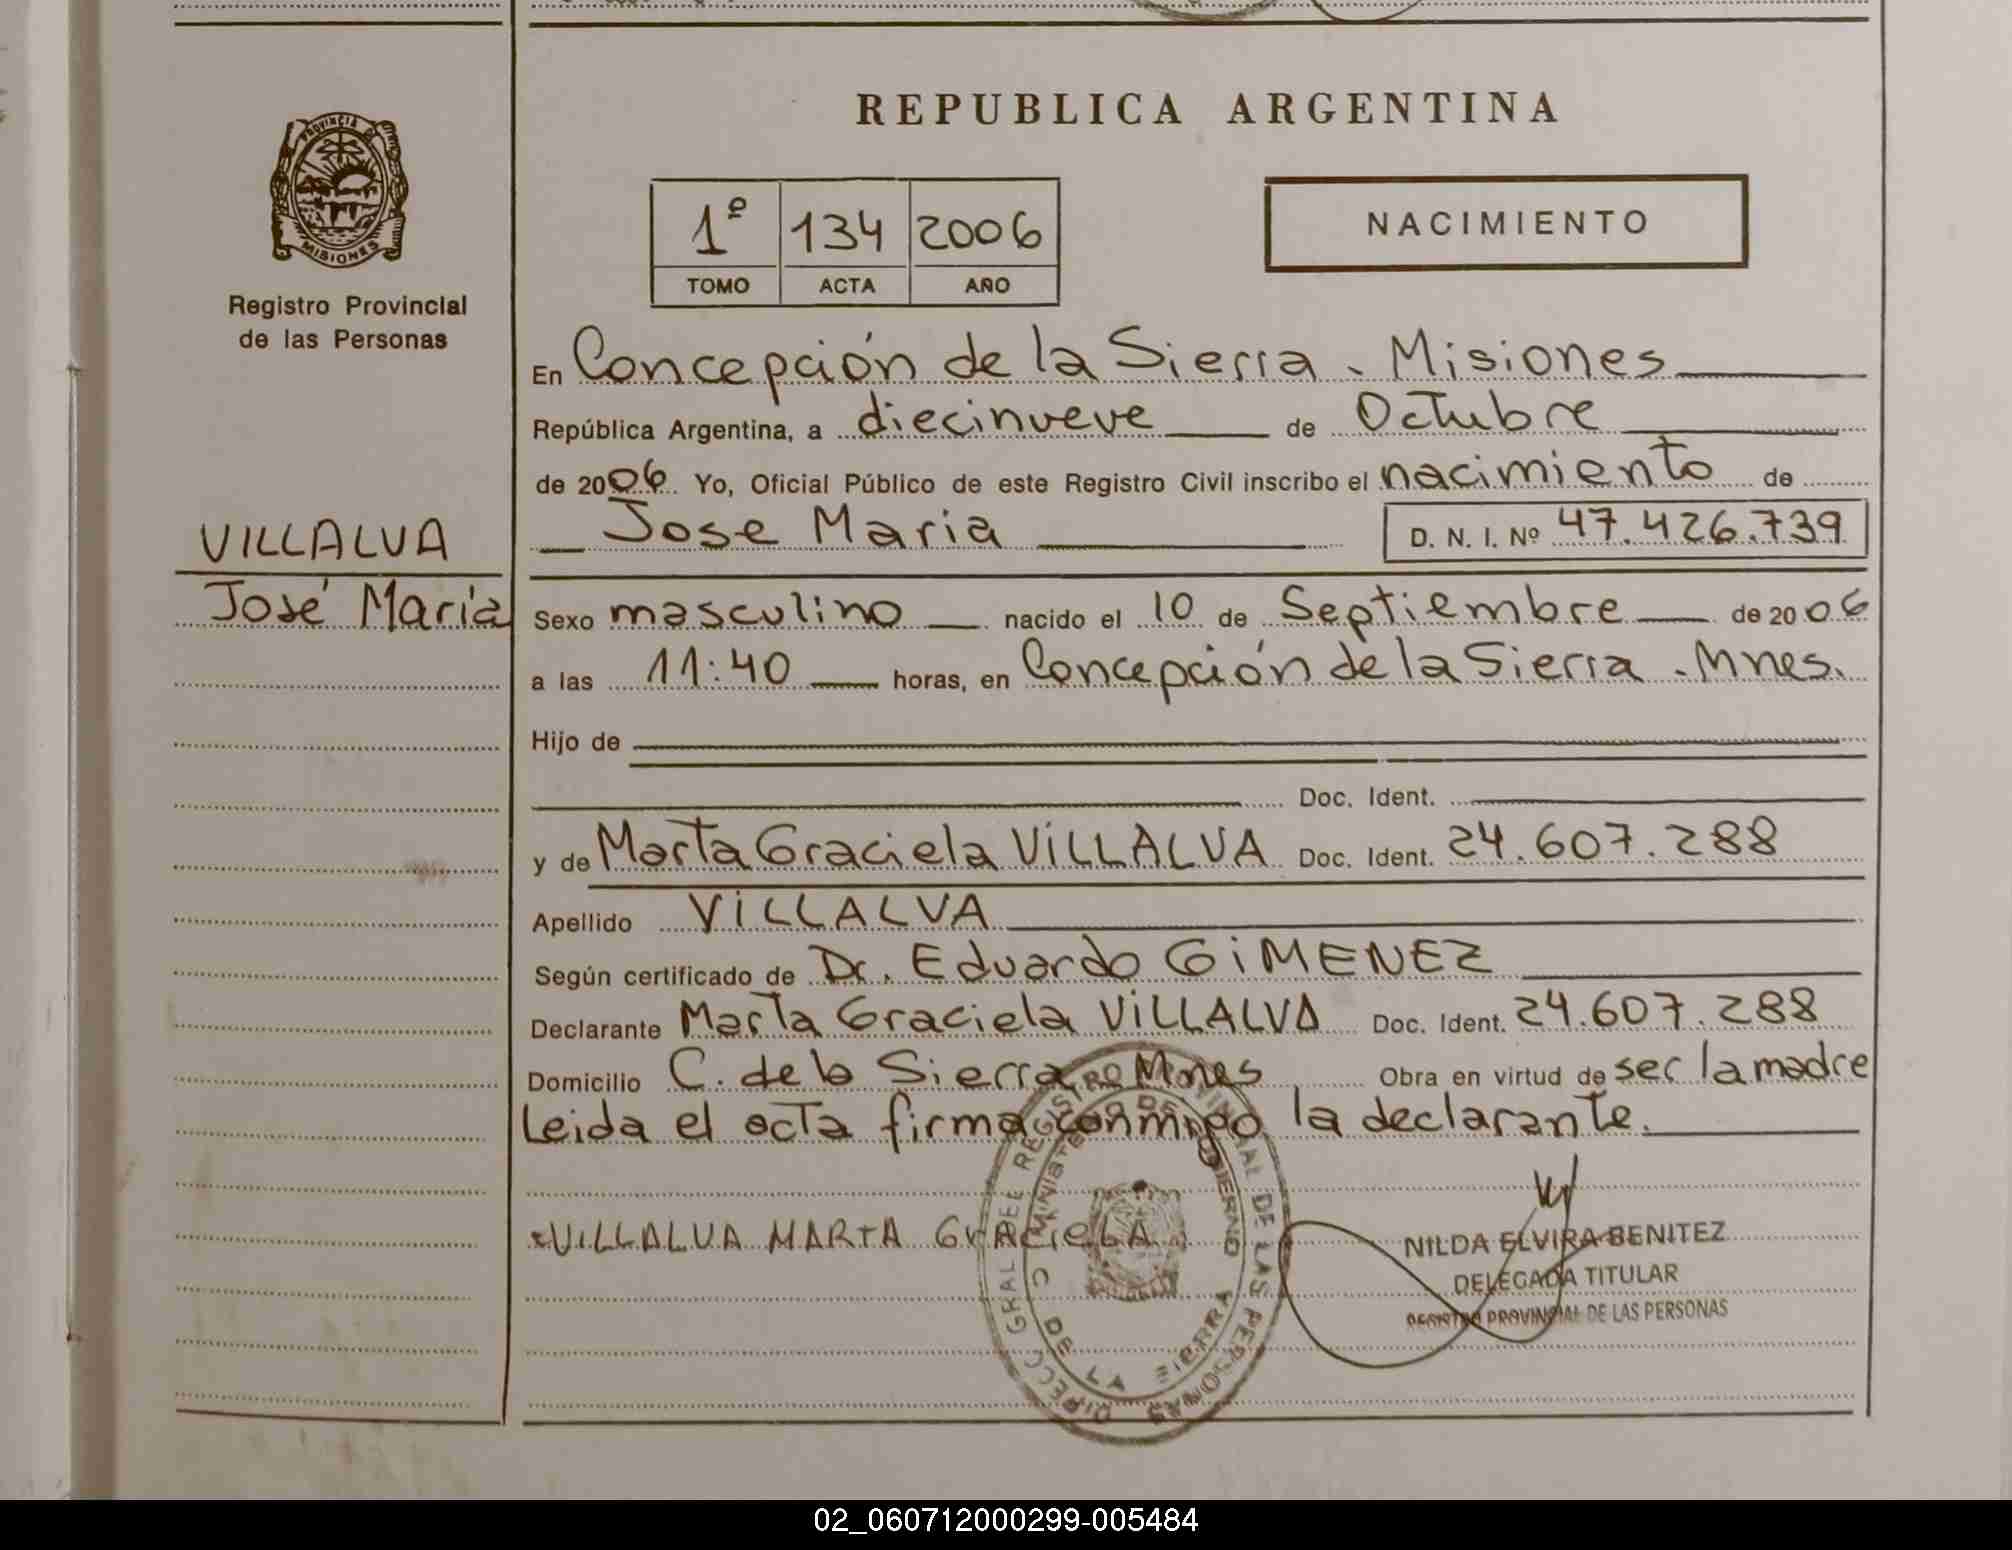 REPUBLICA ARGENTINA
PROVINCIA DE
MISIONES
Registro Provincial
de las Personas
1º 134 2006
TOMO ACTA AÑO
NACIMIENTO
En Concepción de la Sierra - Misiones
República Argentina, a diecinueve de Octubre
de 2006 Yo, Oficial Público de este Registro Civil inscribo el nacimiento de
Jose Maria D. N. I. Nº 47.426.739
VILLALVA
José María
Sexo masculino nacido el 10 de Septiembre de 2006
a las 11:40 horas, en Concepción de la Sierra - Mnes.
Hijo de
Doc. Ident.
y de Marta Graciela VILLALVA Doc. Ident. 24.607.288
Apellido VILLALVA
Según certificado de Dr. Eduardo GIMENEZ
Declarante Marta Graciela VILLALVA Doc. Ident. 24.607.288
Domicilio C. de la Sierra Mnes Obra en virtud de ser la madre
Leida el acta firma conmigo la declarante.
VILLALVA MARTA GrACIeLA
NILDA ELVIRA BENITEZ
DELEGADA TITULAR
REGISTRO PROVINCIAL DE LAS PERSONAS
DIRECC GRAL DEL REGISTRO PROVINCIAL DE LAS PERSONAS
MINISTERIO DE GOBIERNO
C DE LA SIERRA
02_060712000299-005484